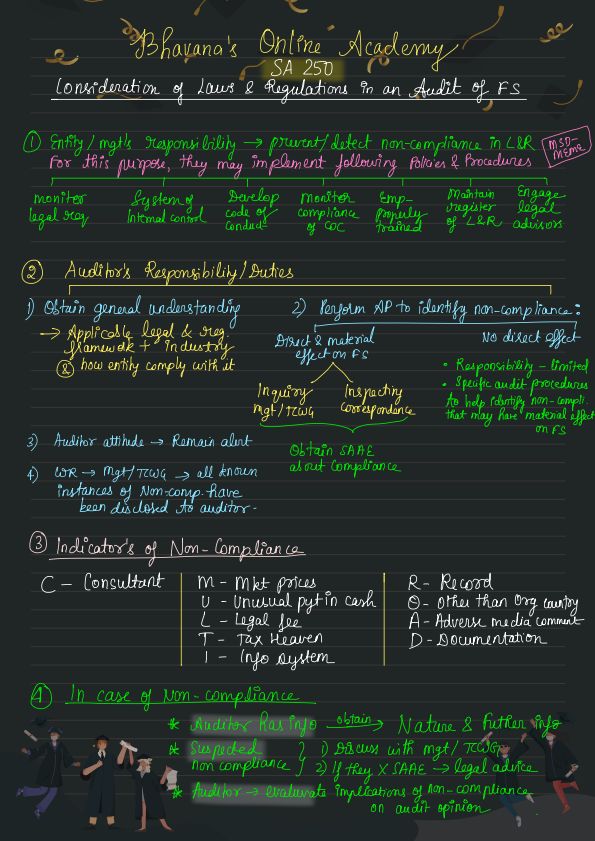 Bhavana's Online Academy
SA 250
Consideration of Laws & Regulations in an Audit of FS
① Entity/mgt's responsibility → prevent/detect non-compliance in L&R
For this purpose, they may implement following Policies & Procedures
MSD-
MEME
monitor
legal req
System of
Internal control
Develop
code of
conduct
Monitor
compliance
of COC
Emp-
properly
trained
Maintain
register
of L&R
Engage
legal
advisors
② Auditor's Responsibility/Duties
1) Obtain general understanding
→ Applicable legal & reg.
framework + industry
& how entity comply with it
2) Perform AP to identify non-compliance:
Direct & material
effect on FS
No direct effect
Inquiry
mgt/TCWG
Inspecting
correspondence
Obtain SAAE
about Compliance
• Responsibility - limited
• Specific audit procedures
to help identify non-compli.
that may have material effect
on FS
3) Auditor attitude → Remain alert
4) WR → Mgt/TCWG → all known
instances of Non-comp. have
been disclosed to auditor.
③ Indicator's of Non-Compliance
C - Consultant
M - Mkt prices
U - Unusual pyt in cash
L - Legal fee
T - Tax Heaven
I - Info System
R - Record
O - Other than Org country
A - Adverse media comment
D - Documentation
④ In case of Non-compliance
* Auditor has info obtain → Nature & futher info
* Suspected
non compliance } 1) Discuss with mgt/TCWG
2) If they X SAAE → legal advice
* Auditor → evaluvate implications of non-compliance
on audit opinion